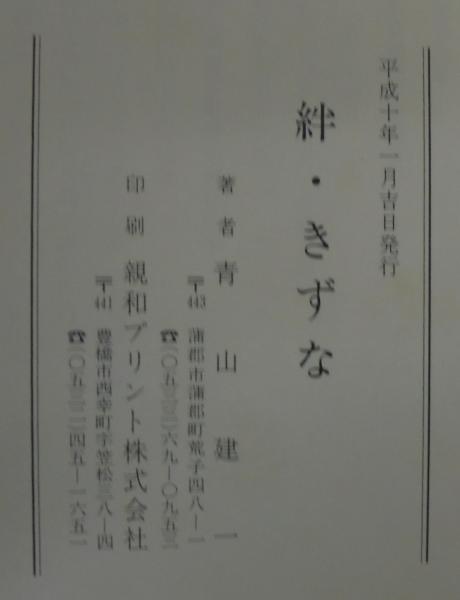 平成十年一月吉日発行
絆・きずな
著者 青山建一
〒443 蒲郡市蒲郡町荒子四八―一
☎〇五三三―六九―〇九五三
印刷 親和プリント株式会社
〒441 豊橋市西幸町字笠松三八―四
☎〇五三二―四五―一六五一